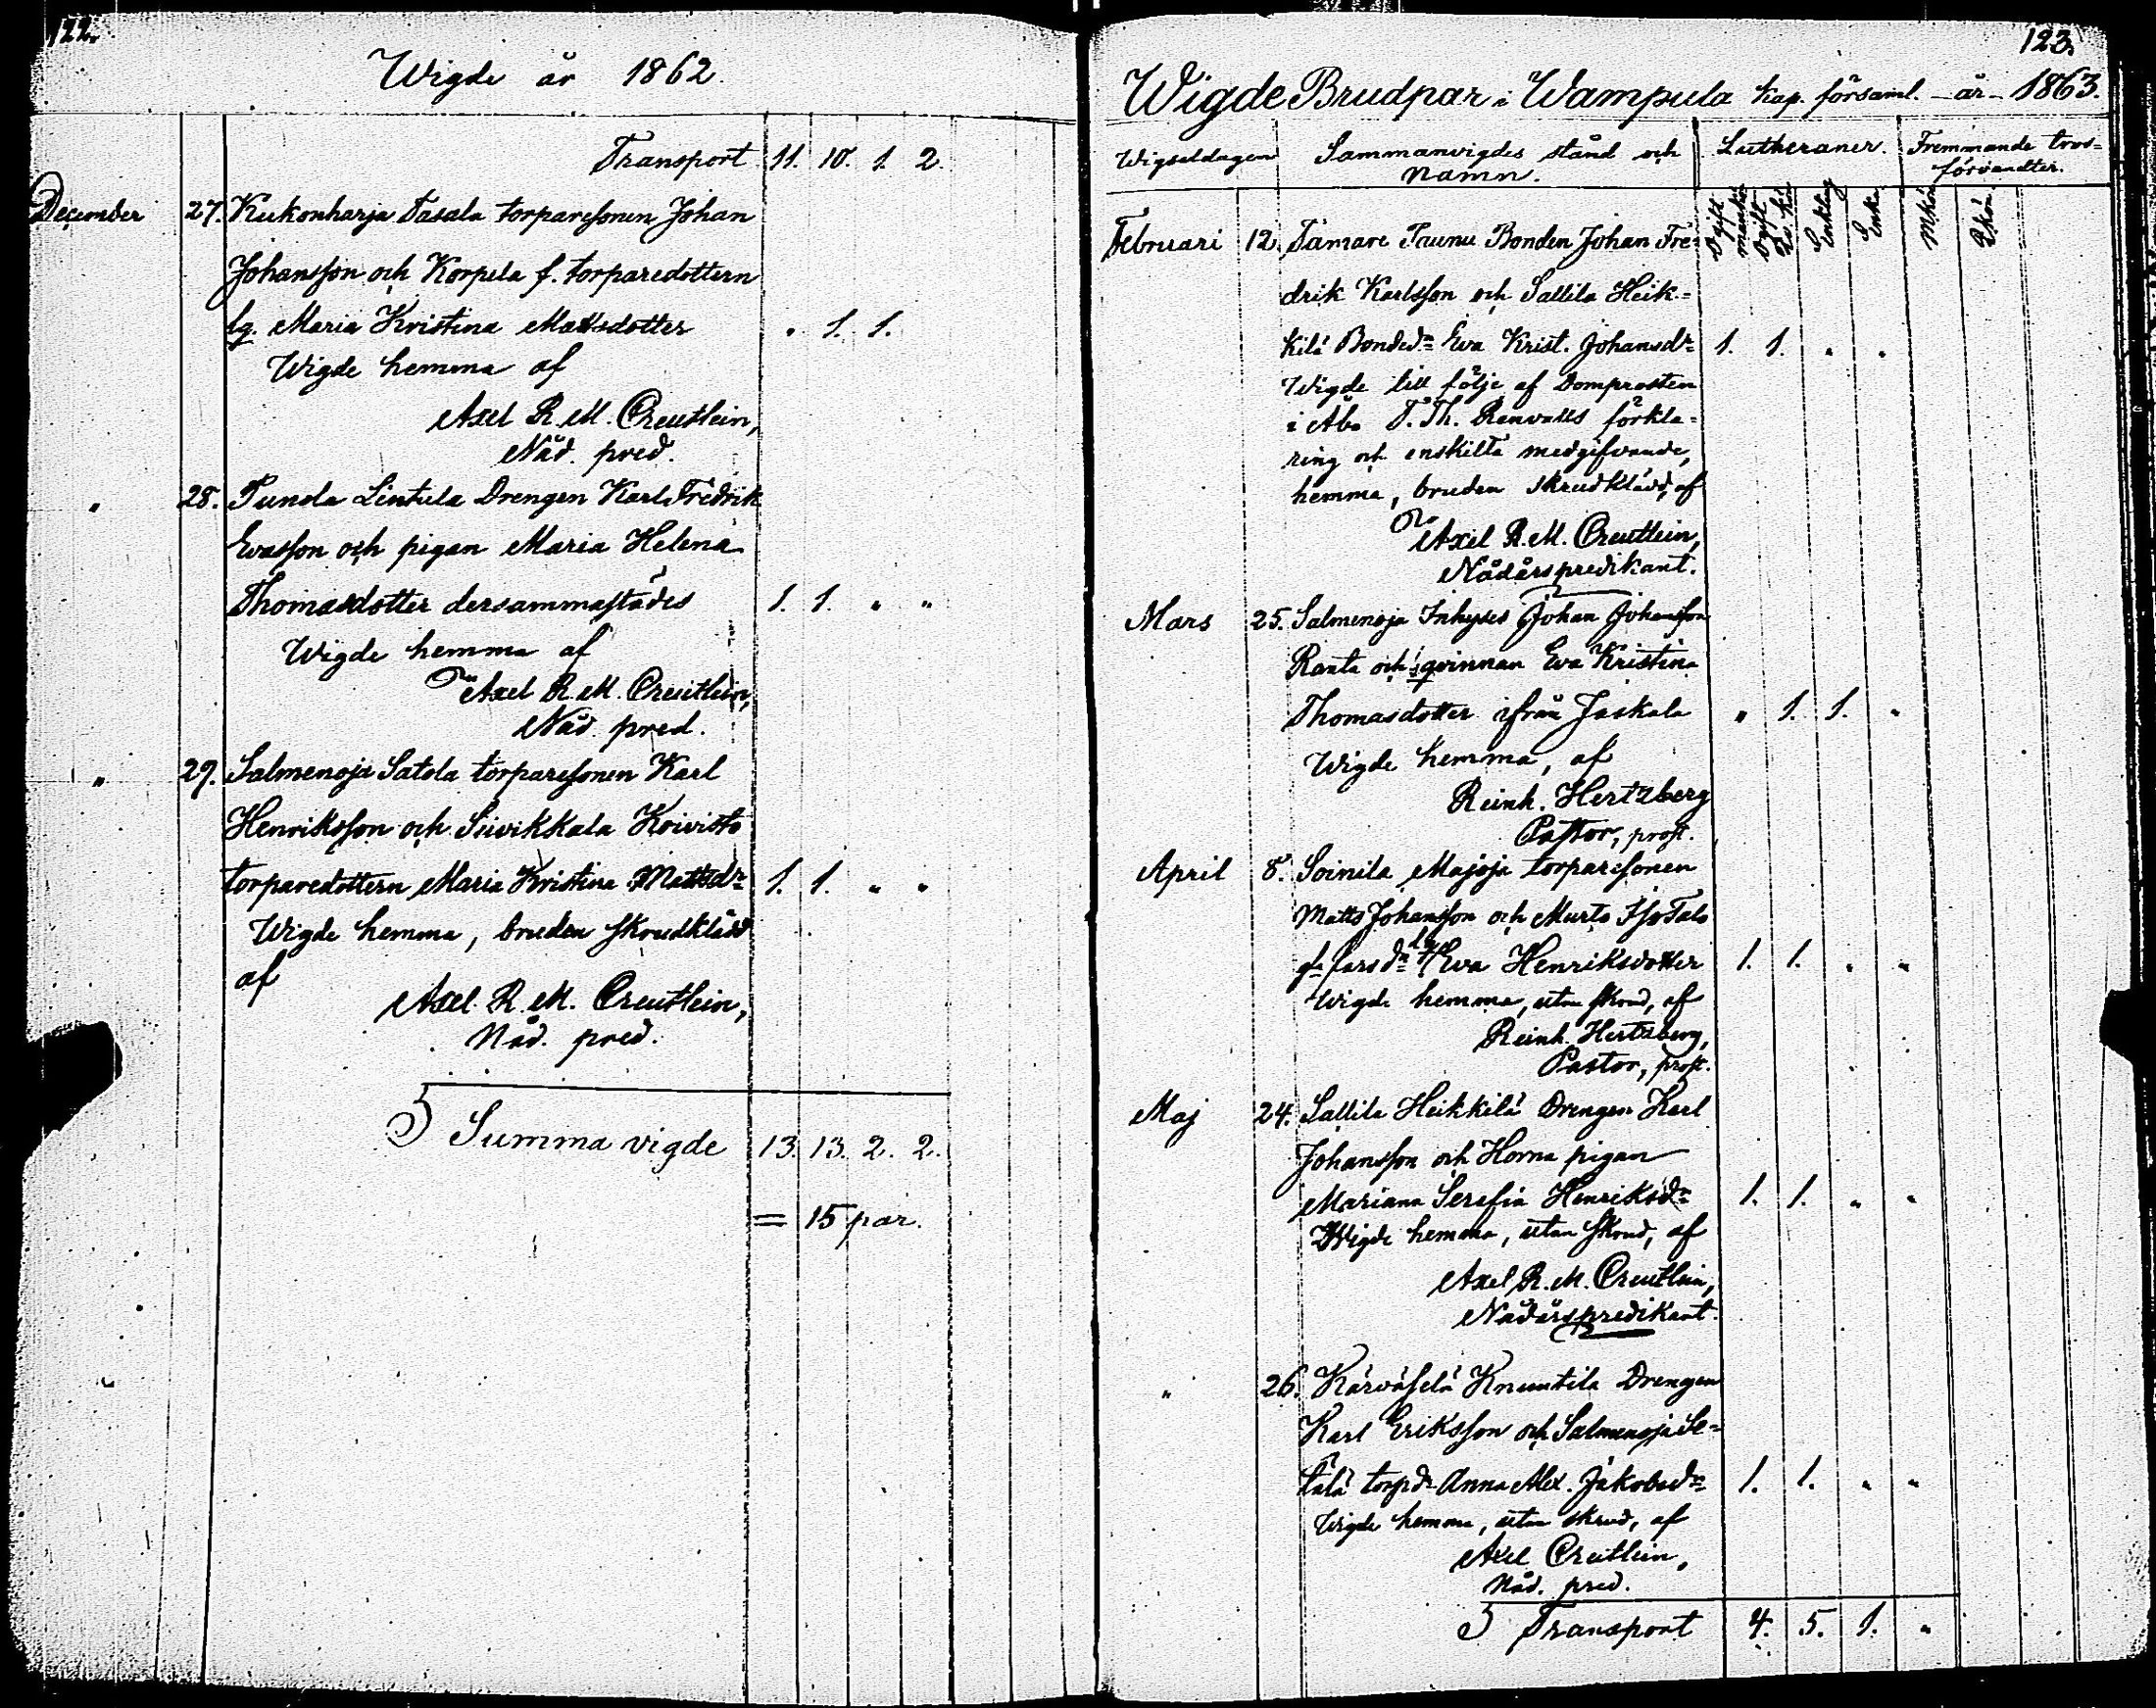 122.
Wigde år 1862.
Transport 11. 10. 1. 2.
December 27. Kukonharja Tasala torparesonen Johan
Johansson och Korpela f. torparedottern
lg. Maria Kristina Mattsdotter " 1. 1.
Wigde hemma af
Axel R. M. Creutlein,
Nåd. pred.
" 28. Punola Lintula Drengen Karl Fredrik
Evasson och pigan Maria Helena
Thomasdotter dersammastädes 1. 1. " "
Wigde hemma af
Axel R. M. Creutlein,
Nåd. pred.
" 29. Salmenoja Satola torparesonen Karl
Henriksson och Suvikkala Koivisto
torparedottern Maria Kristina Mattsdr 1. 1. " "
Wigde hemma, bruden skrudklädd
af
Axel R. M. Creutlein,
Nåd. pred.
Summa vigde 13. 13. 2. 2.
= 15 par.
123.
Wigde Brudpar i Wampula kap. församl. - år - 1863.
Wigseldagen Sammanvigdes stånd och Lutheraner. Fremmande tros=
namn. förvandter.
Ogift mankön Ogift qv. kön Enkling Enka M.kön Q.kön
Februari 12. Tamare Paunu Bonden Johan Fre=
drik Karlsson och Sallila Heik=
kilä Bondedr Eva Krist. Johansdr 1. 1. " "
Wigde till följe af Domprosten
i Åbo T. Th. Renvalls förkla=
ring och enskilta medgifvande,
hemma, bruden skrudklädd, af
Axel R. M. Creutlein,
Nådårspredikant.
Mars 25. Salmenoja Inhyses Johan Johansson
Ranta och qvinnan Eva Kristina
Thomasdotter ifrån Jaskala " 1. 1. "
Wigde hemma, af
Reinh. Hertzberg
Pastor, prost.
April 8. Soinila Majoja torparesonen
Matts Johansson och Murto Iso Talo
lg Eva Henriksdotter 1. 1. " "
Wigde hemma, utan skrud, af
Reinh. Hertzberg,
Pastor, prost.
Maj 24. Sallila Heikkilä Drengen Karl
Johansson och Horna pigan
Mariana Serafia Henriksdr 1. 1. " "
Wigde hemma, utan skrud, af
Axel R. M. Creutlein,
Nådårspredikant.
" 26. Kärväselä Knuutila Drengen
Karl Eriksson och Salmenoja Se=
tälä torpdr Anna Alex. Jakobsdr 1. 1. " "
Wigde hemma, utan skrud, af
Axel Creutlein,
Nåd. pred.
Transport 4. 5. 1. "